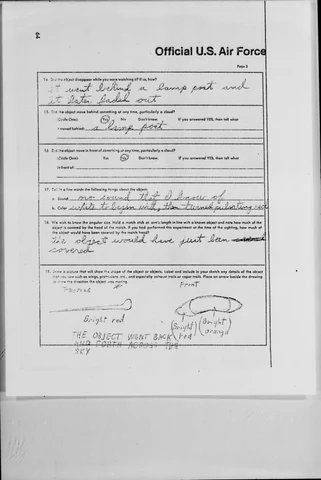 Official U.S. Air Force
Page 5
14. Did the object disappear while you were watching it? If so, how?
it went behind a lamp post and
it later faded out
15. Did the object move behind something at any time, particularly a cloud?
(Circle One): Yes No Don't Know. If you answered YES, then tell what
it moved behind: a lamp post
16. Did the object move in front of something at any time, particularly a cloud?
(Circle One): Yes No Don't Know. If you answered YES, then tell what
in front of:
17. Tell in a few words the following things about the object:
a. Sound no sound that I know of
b. Color white to begin with, then turned pulsating red
18. We wish to know the angular size. Hold a match stick at arm's length in line with a known object and note how much of the
object is covered by the head of the match. If you had performed this experiment at the time of the sighting, how much of
the object would have been covered by the match head?
The object would have just ban
covered
19. Draw a picture that will show the shape of the object or objects. Label and include in your sketch any details of the object
that you saw such as wings, protrusions, etc., and especially exhaust trails or vapor trails. Place an arrow beside the drawing
to show the direction the object was moving.
Front
Bright red
(Bright red)
(Bright orange)
THE OBJECT WENT BACK
AND FORTH ACROSS THE
SKY